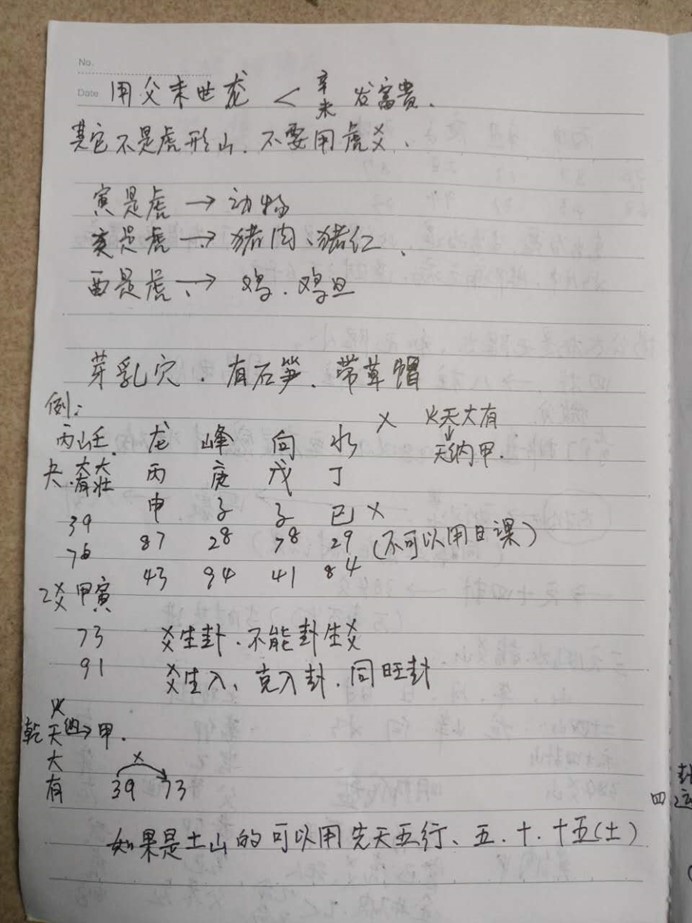 No.
Date
用父未世龙 < 辛未 发富贵.
其它不是虎形山.不要用虎爻.
寅是虎 → 动物
亥是虎 → 猪肉、猪红.
酉是虎、→ 鸡.鸡旦
芽乳穴.有石笋.带草帽
例:
丙山壬. 龙 峰 向 水 × 火天大有
大有 大壮 丙 庚 戊 丁 ↓天纳甲.
申 子 子 巳 ×
39 87 28 78 29 (不可以用日课)
76 43 94 41 84
2爻 甲寅
73 爻生卦.不能卦生爻
91 爻生入、克入卦.同旺卦
火
乾天纳→甲.
大 ×
有 39 73
如果是土山的可以用先天五行、五.十.十五(土)
卦
四运